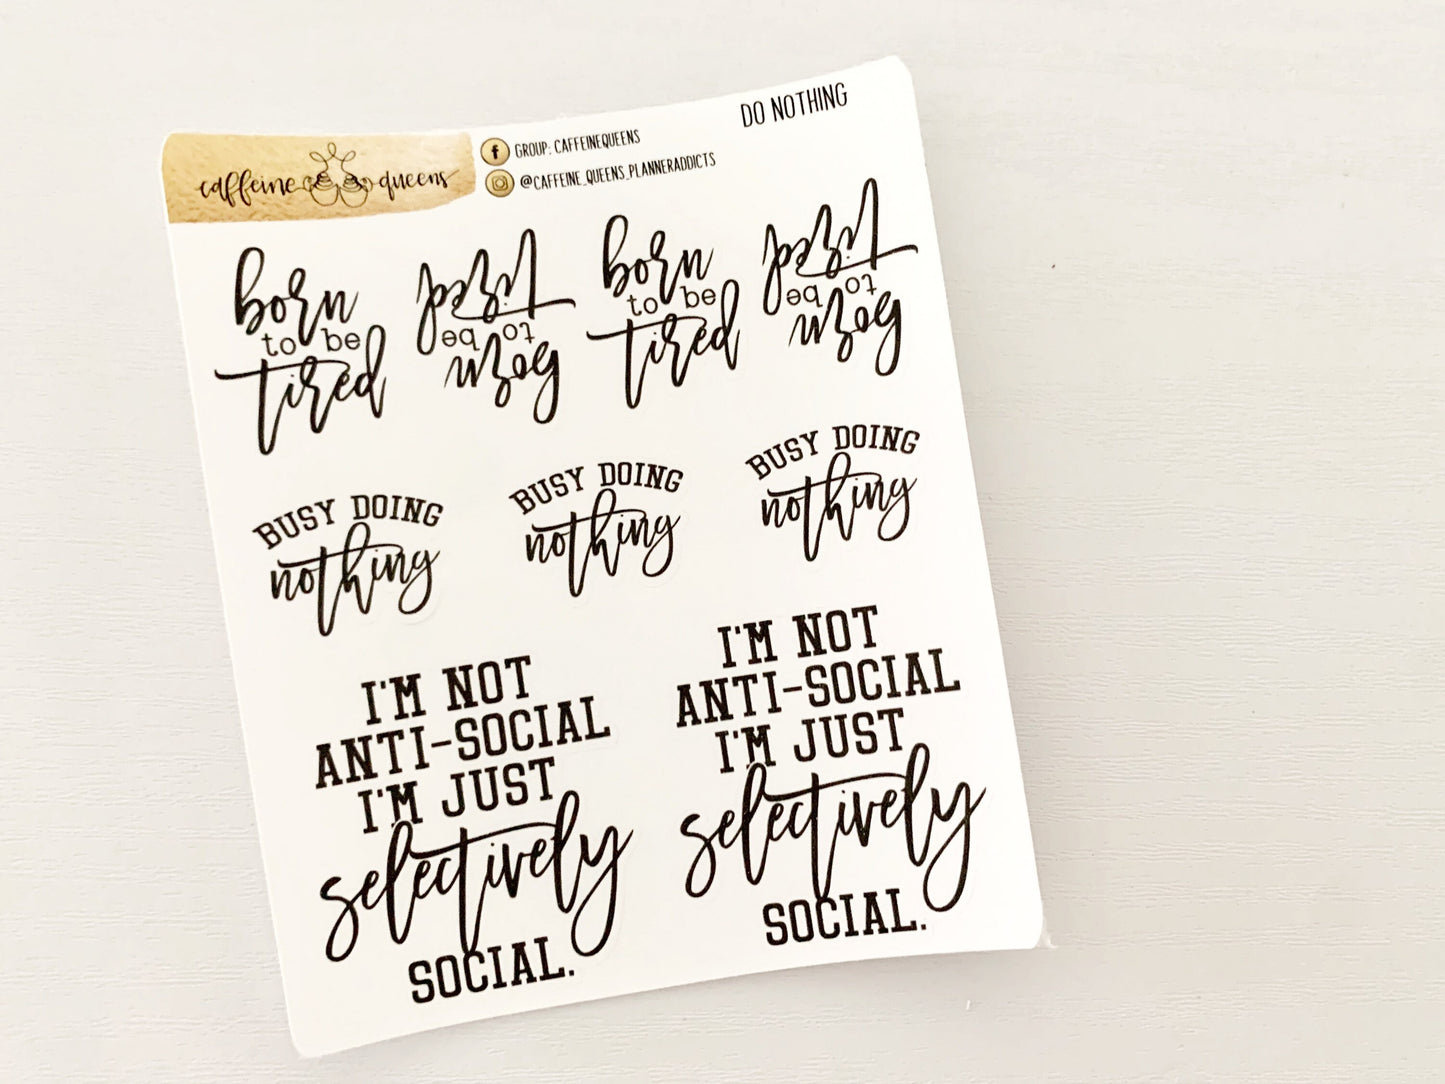 caffeine queens
GROUP: CAFFEINEQUEENS
@CAFFEINE_QUEENS_PLANNERADDICTS
DO NOTHING
born
to be
tired
born
to be
tired
born
to be
tired
born
to be
tired
BUSY DOING
nothing
BUSY DOING
nothing
BUSY DOING
nothing
I'M NOT
ANTI-SOCIAL
I'M JUST
selectively
SOCIAL.
I'M NOT
ANTI-SOCIAL
I'M JUST
selectively
SOCIAL.